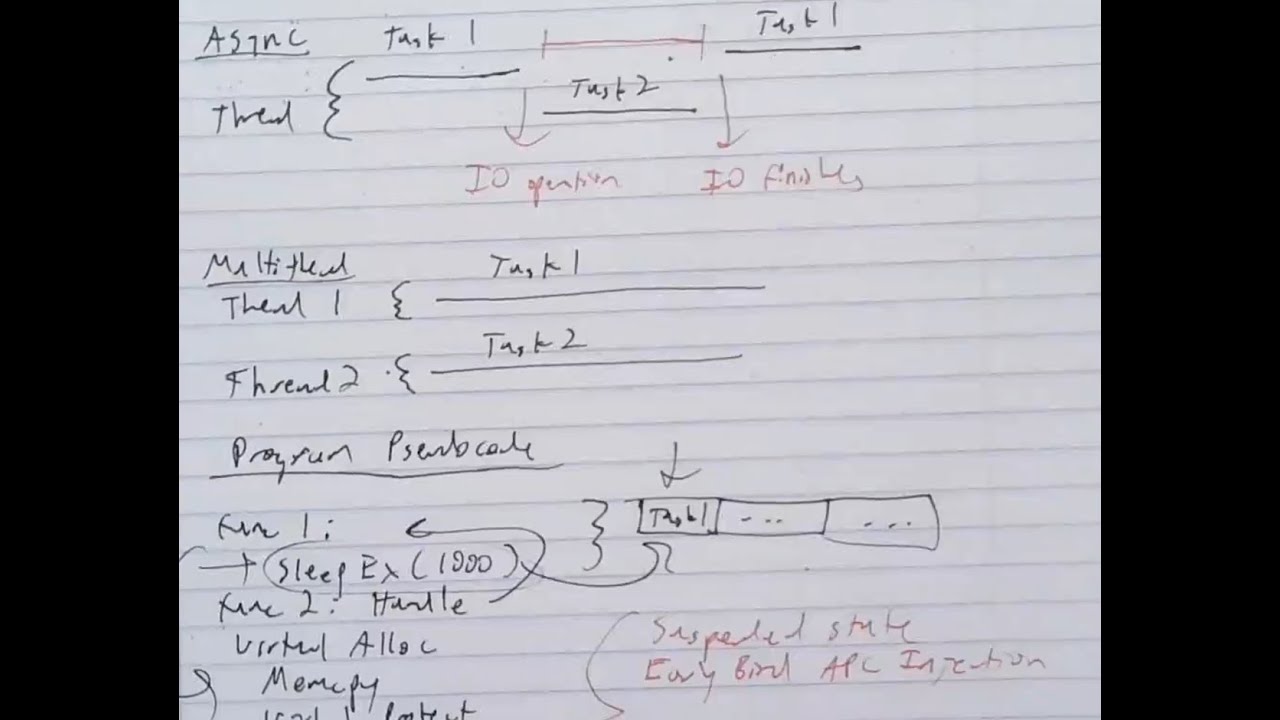 Async Task 1 Task 1
Thread Task 2
IO operation IO finishes
Multithread Task 1
Thread 1
Task 2
Thread 2
Program Pseudocode
Func 1: Task 1 ... ...
SleepEx(1000)
Func 2: Handle
Virtual Alloc Suspended state
Memcpy Early Bird APC Injection